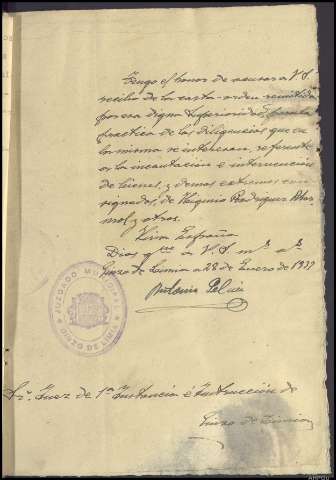 Tengo el honor de acusar a V.S.
recibo de la carta-orden remitida
por esa digna Superioridad, para la
practica de las diligencias que en
la misma se interesan, referente
a la incautación e intervención
de bienes, y demas extremos con
signados, de Higinio Rodriguez
y otros.
Viva España
Dios gue a V.S. ms as
Ginzo de Limia a 28 de Enero de 1937
Antonio
JUZGADO MUNICIPAL
GINZO DE LIMIA
Sr. Juez de 1ª Instancia é Instrucción de
Ginzo de Limia